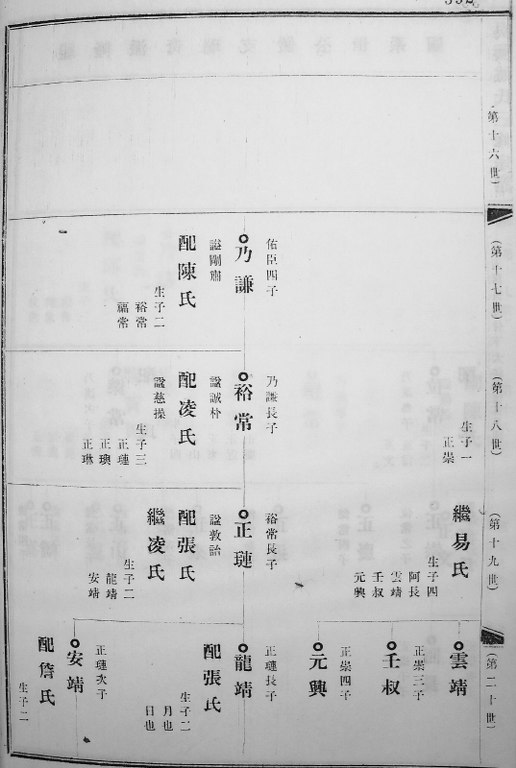 332
第十六世
(第十七世)
佑臣四子
乃謙
諡剛肅
配陳氏
生子二
裕常
福常
(第十八世)
生子一
正崇
乃謙長子
裕常
諡誠朴
配凌氏
諡慈操
生子三
正璉
正璵
正琳
(第十九世)
繼易氏
生子四
阿長
雲靖
壬叔
元興
裕常長子
正璉
諡敦詒
配張氏
繼凌氏
生子二
龍靖
安靖
(第二十世)
雲靖
正崇三子
壬叔
正崇四子
元興
正璉長子
龍靖
配張氏
生子二
月也
日也
正璉次子
安靖
配詹氏
生子二